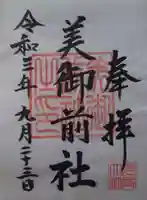 奉拝
美御前社
令和三年九月二十三日